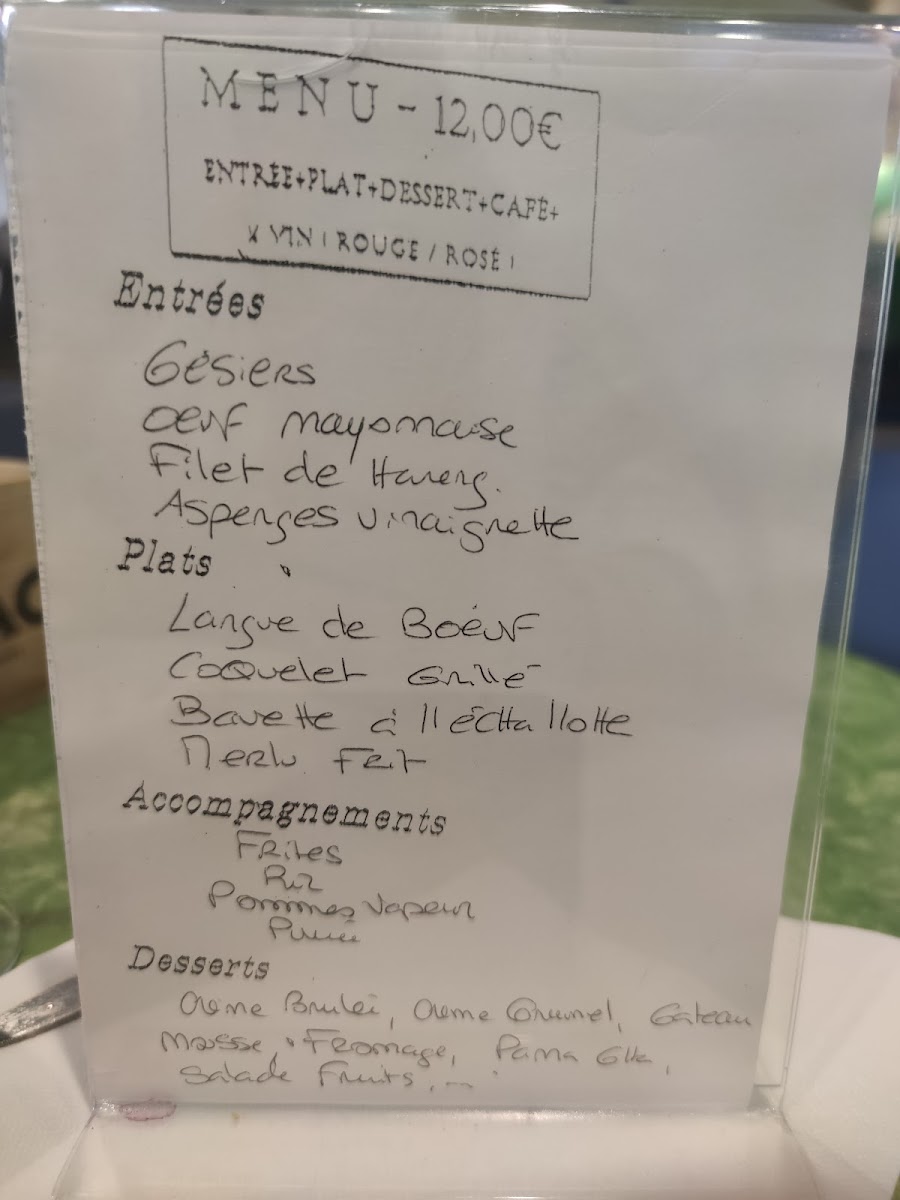 MENU - 12,00€
ENTRÉE+PLAT+DESSERT+CAFÉ+
¼ VIN ( ROUGE / ROSÉ )
Entrées
Gésiers
Oeuf mayonnaise
Filet de Hareng.
Asperges vinaignette
Plats
Langue de Boeuf
Coquelet Grillé
Bavette à l'échallotte
Merlu Frit
Accompagnements
Frites
Riz
Pommes Vapeur
Purée
Desserts
Crème Brulée, Crème Caramel, Gateau
Mousse, Fromage, Pana Cotta,
Salade Fruits, ...